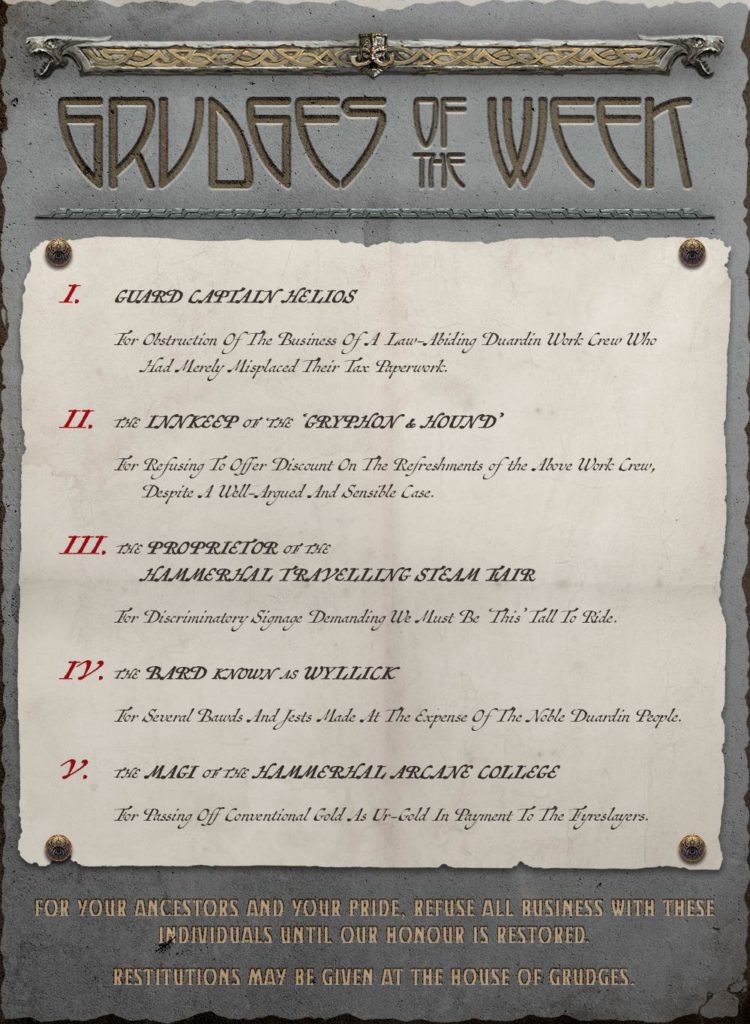 GRUDGES OF THE WEEK
I. GUARD CAPTAIN HELIOS
For Obstruction Of The Business Of A Law-Abiding Duardin Work Crew Who
Had Merely Misplaced Their Tax Paperwork.
II. THE INNKEEP OF THE 'GRYPHON & HOUND'
For Refusing To Offer Discount On The Refreshments of the Above Work Crew,
Despite A Well-Argued And Sensible Case.
III. THE PROPRIETOR OF THE
HAMMERHAL TRAVELLING STEAM FAIR
For Discriminatory Signage Demanding We Must Be 'This' Tall To Ride.
IV. THE BARD KNOWN AS WYLLICK
For Several Bawds And Jests Made At The Expense Of The Noble Duardin People.
V. THE MAGI OF THE HAMMERHAL ARCANE COLLEGE
For Passing Off Conventional Gold As Ur-Gold In Payment To The Fyreslayers.
FOR YOUR ANCESTORS AND YOUR PRIDE, REFUSE ALL BUSINESS WITH THESE
INDIVIDUALS UNTIL OUR HONOUR IS RESTORED.
RESTITUTIONS MAY BE GIVEN AT THE HOUSE OF GRUDGES.